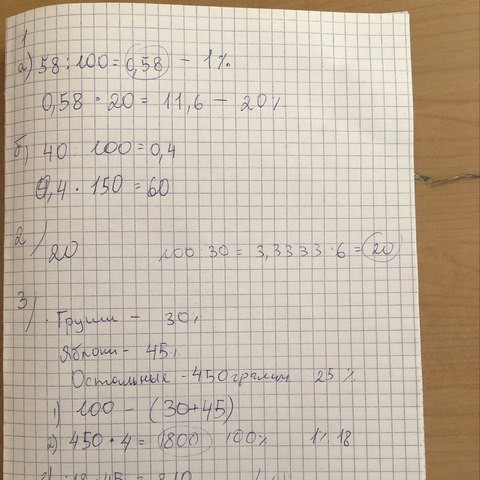 1
а) 58 : 100 = 0,58 – 1%
0,58 · 20 = 11,6 – 20%
б) 40 : 100 = 0,4
0,4 · 150 = 60
2) 20 100 30 = 3,3333 · 6 = 20
3)
Груши – 30%
Яблоки – 45%
Остальные – 450 грамм 25%
1) 100 – (30+45)
2) 450 · 4 = 1800 100% 1% 18
18 · 45 = 810